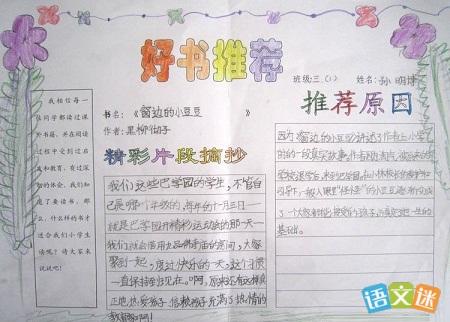 好书推荐
班级:三.(1) 姓名:孙明
我相信每一
位同学都读过课
外书籍,并在阅读
过程中受到过启
发和教育,有过深
刻的体会。我们知
道了要读书,那
么,什么样的书才
适合我们小学生
读呢?请大家来
说说吧!
书名:《窗边的小豆豆》
作者:黑柳彻子
精彩片段摘抄
我们这些巴学园的学生,不管自
己是哪个年级的,每年的十一月三日—
就是巴学园开精彩运动会的那一天—
我们就会借用九品佛寺庙的房间,大家
聚到一起,度过快乐的一天,这个习惯
一直保持到现在。啊,原来还有这样真
正地热爱孩子、信赖孩子、充满了热情的
教育家啊!
推荐原因
因为《窗边的小豆豆》讲述了作者上小学
时的一段真实故事。作者因淘气,被原来的
学校退学后,来到巴学园。在小林校长的爱护和
引导下,一般人眼里“怪怪”的小豆豆逐渐变成
了一个大家都能接受的孩子,并奠定了她一生的
基础。
语文迷